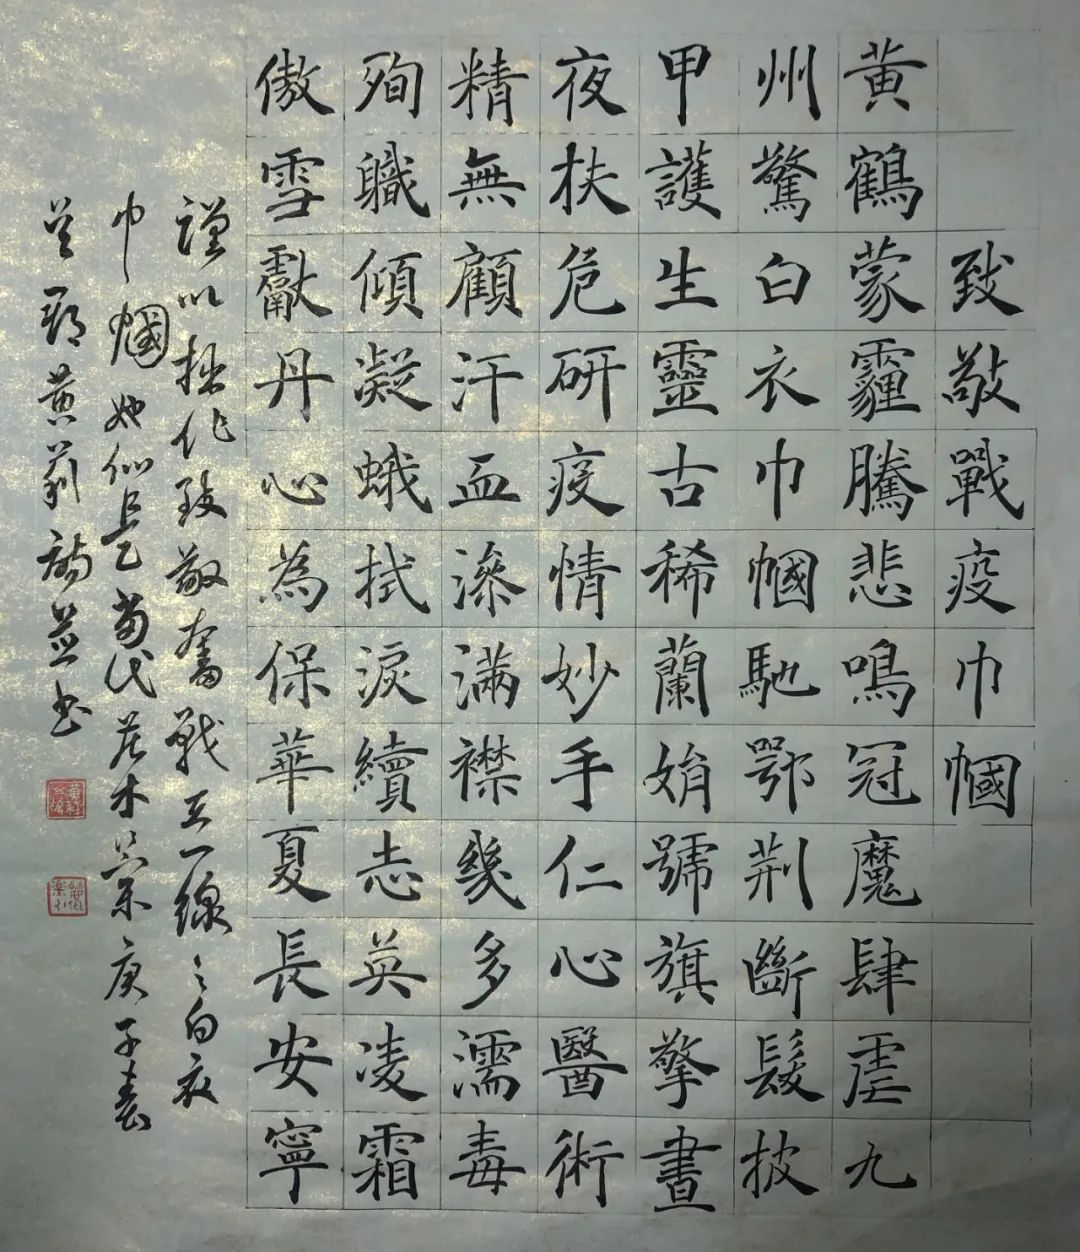 致敬戰疫巾幗
黃鶴蒙霾騰悲鳴冠魔肆虐九
州驚白衣巾幗馳鄂荆斷髮披
甲護生靈古稀蘭娟號旗擎晝
夜扶危研疫情妙手仁心醫術
精無顧汗血滲滿襟幾多濡毒
殉職傾凝蛾拭淚續志英凌霜
傲雪獻丹心為保華夏長安寧
謹以拙作致敬奮戰在一線之白衣
巾幗她們是當代花木蘭庚子春
黃莉詩並書